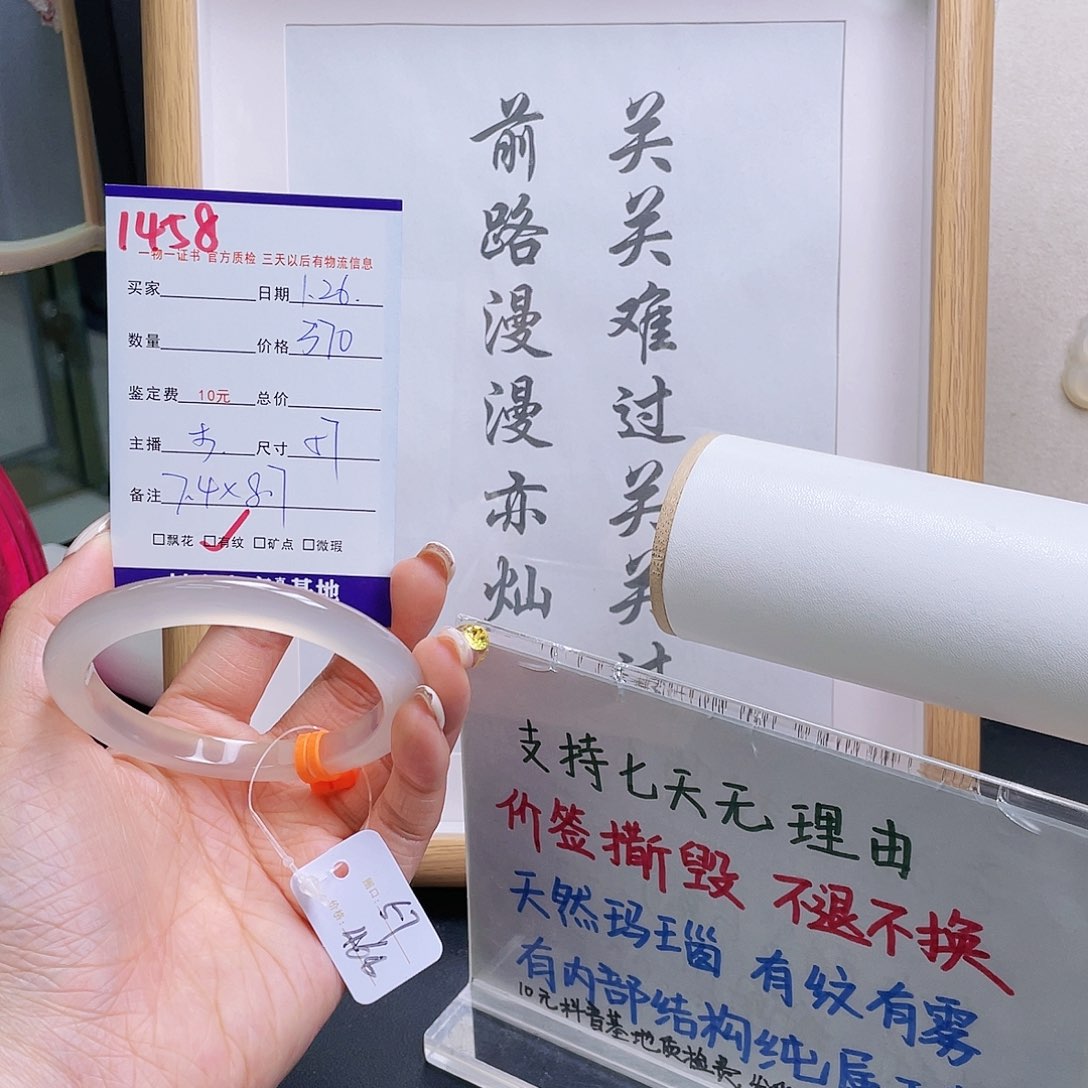 1458
一物一证书 官方质检 三天以后有物流信息
买家 日期 1.26.
数量 价格 370
鉴定费 10元 总价
主播 尺寸 57
备注 7.4×8.7
□飘花 □有纹 □矿点 □微瑕
基地
关关难过关关过
前路漫漫亦灿
圈口: 57
价格:
支持七天无理由
价签撕毁 不退不换
天然玛瑙 有纹有雾
有内部结构纯属
10元抖音基地质检费